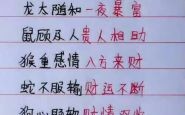 龙太随和一夜暴富
鼠顾及人贵人相助
猴重感情八方来财
蛇不服输财运不断